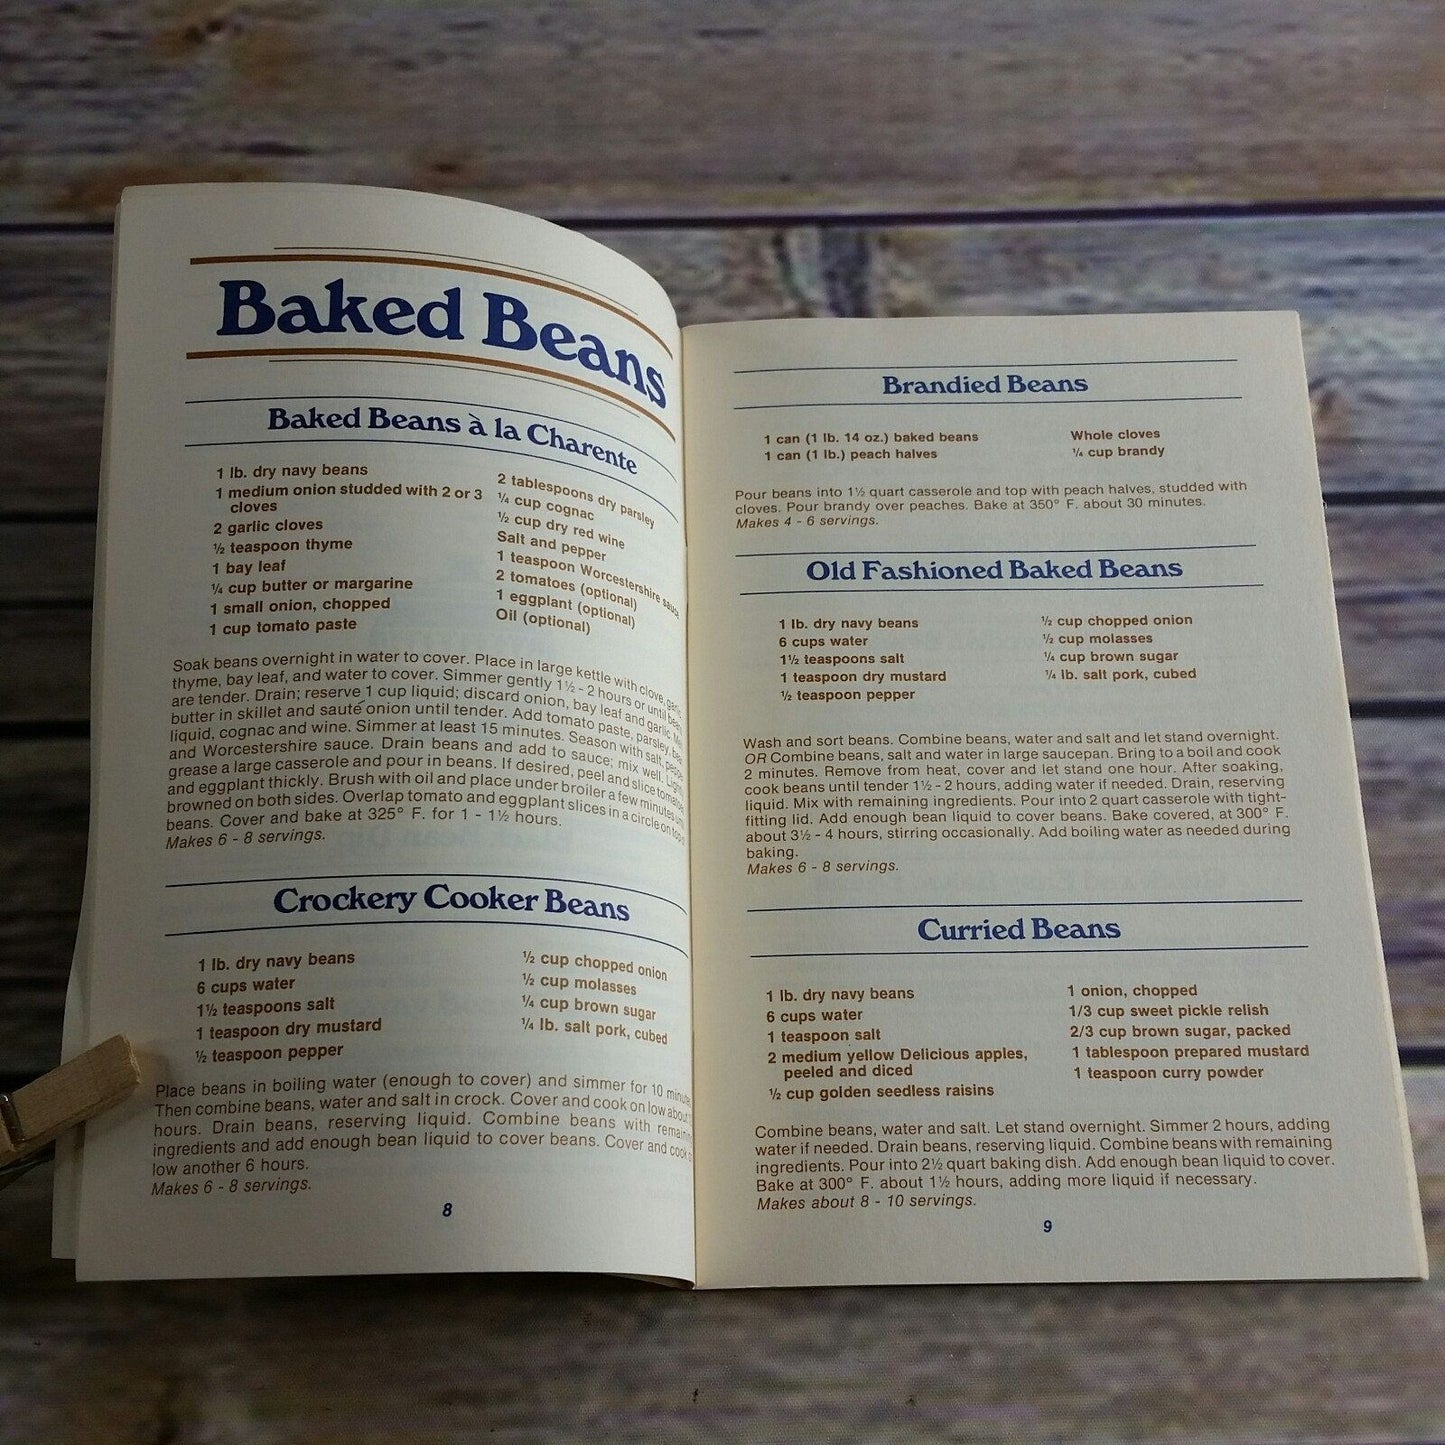 Baked Beans
Baked Beans à la Charente
1 lb. dry navy beans
1 medium onion studded with 2 or 3
cloves
2 garlic cloves
½ teaspoon thyme
1 bay leaf
¼ cup butter or margarine
1 small onion, chopped
1 cup tomato paste
2 tablespoons dry parsley
¼ cup cognac
½ cup dry red wine
Salt and pepper
1 teaspoon Worcestershire sauce
2 tomatoes (optional)
1 eggplant (optional)
Oil (optional)
Soak beans overnight in water to cover. Place in large kettle with clove, garlic,
thyme, bay leaf, and water to cover. Simmer gently 1½ - 2 hours or until beans
are tender. Drain; reserve 1 cup liquid; discard onion, bay leaf and garlic.
butter in skillet and sauté onion until tender. Add tomato paste, parsley,
liquid, cognac and wine. Simmer at least 15 minutes. Season with salt,
and Worcestershire sauce. Drain beans and add to sauce; mix well.
grease a large casserole and pour in beans. If desired, peel and slice tomatoes
and eggplant thickly. Brush with oil and place under broiler a few minutes until
browned on both sides. Overlap tomato and eggplant slices in a circle on top
beans. Cover and bake at 325° F. for 1 - 1½ hours.
Makes 6 - 8 servings.
Crockery Cooker Beans
1 lb. dry navy beans
6 cups water
1½ teaspoons salt
1 teaspoon dry mustard
½ teaspoon pepper
½ cup chopped onion
½ cup molasses
¼ cup brown sugar
¼ lb. salt pork, cubed
Place beans in boiling water (enough to cover) and simmer for 10
Then combine beans, water and salt in crock. Cover and cook on low about
hours. Drain beans, reserving liquid. Combine beans with
ingredients and add enough bean liquid to cover beans. Cover and cook
low another 6 hours.
Makes 6 - 8 servings.
8
Brandied Beans
1 can (1 lb. 14 oz.) baked beans
1 can (1 lb.) peach halves
Whole cloves
¼ cup brandy
Pour beans into 1½ quart casserole and top with peach halves, studded with
cloves. Pour brandy over peaches. Bake at 350° F. about 30 minutes.
Makes 4 - 6 servings.
Old Fashioned Baked Beans
1 lb. dry navy beans
6 cups water
1½ teaspoons salt
1 teaspoon dry mustard
½ teaspoon pepper
½ cup chopped onion
½ cup molasses
¼ cup brown sugar
¼ lb. salt pork, cubed
Wash and sort beans. Combine beans, water and salt and let stand overnight.
OR Combine beans, salt and water in large saucepan. Bring to a boil and cook
2 minutes. Remove from heat, cover and let stand one hour. After soaking,
cook beans until tender 1½ - 2 hours, adding water if needed. Drain, reserving
liquid. Mix with remaining ingredients. Pour into 2 quart casserole with tight-
fitting lid. Add enough bean liquid to cover beans. Bake covered, at 300° F.
about 3½ - 4 hours, stirring occasionally. Add boiling water as needed during
baking.
Makes 6 - 8 servings.
Curried Beans
1 lb. dry navy beans
6 cups water
1 teaspoon salt
2 medium yellow Delicious apples,
peeled and diced
½ cup golden seedless raisins
1 onion, chopped
1/3 cup sweet pickle relish
2/3 cup brown sugar, packed
1 tablespoon prepared mustard
1 teaspoon curry powder
Combine beans, water and salt. Let stand overnight. Simmer 2 hours, adding
water if needed. Drain beans, reserving liquid. Combine beans with remaining
ingredients. Pour into 2½ quart baking dish. Add enough bean liquid to cover.
Bake at 300° F. about 1½ hours, adding more liquid if necessary.
Makes about 8 - 10 servings.
9